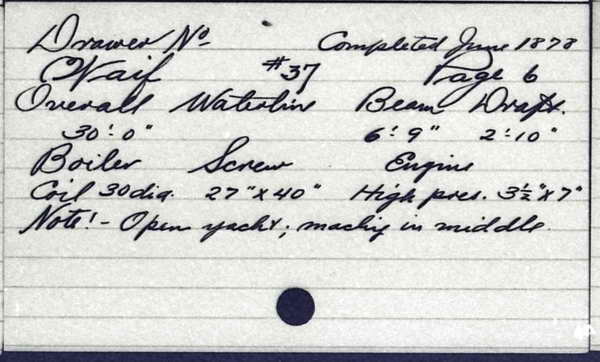 Drawer No. Completed June 1878
Waif #37 Page 6
Overall Waterline Beam Draft.
30'-0" 6'-9" 2'-10"
Boiler Screw Engine
Coil 30 dia. 27"x40" High pres. 3½"x7"
Note! - Open yacht; machy in middle.